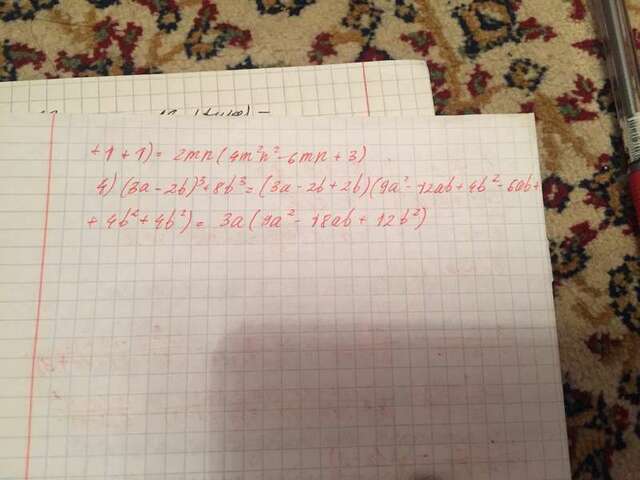 +1+1) = 2mn(4m²n² - 6mn + 3)
4) (3a - 2b)³ + 8b³ = (3a - 2b + 2b)(9a² - 12ab + 4b² - 6ab +
+ 4b² + 4b²) = 3a(9a² - 18ab + 12b²)